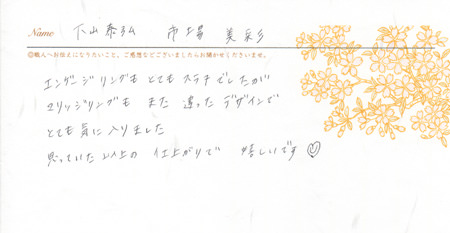 Name 下山泰弘 市場美彩
◎職人へお伝えになりたいこと、ご感想などございましたらお聞かせくださいませ。
エンゲージリングもとてもステキでしたが
マリッジリングもまた違ったデザインで
とても気に入りました
思っていた以上の仕上がりで 嬉しいです